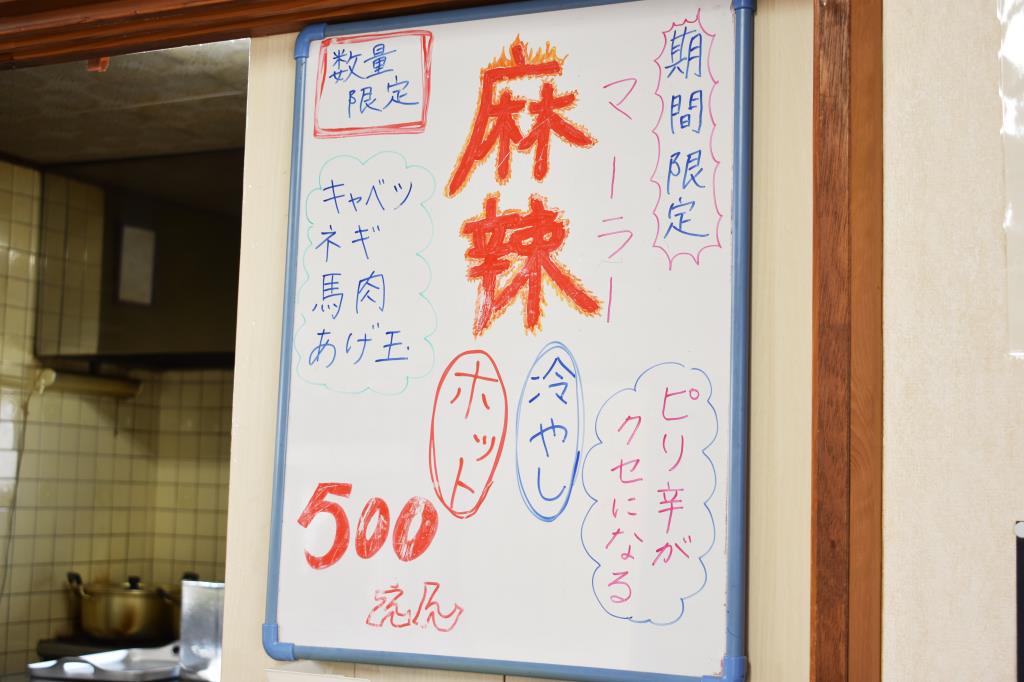 期間限定
麻辣
マーラー
数量
限定
キャベツ
ネギ
馬肉
あげ玉
冷やし
ホット
ピリ辛が
クセになる
500
えん